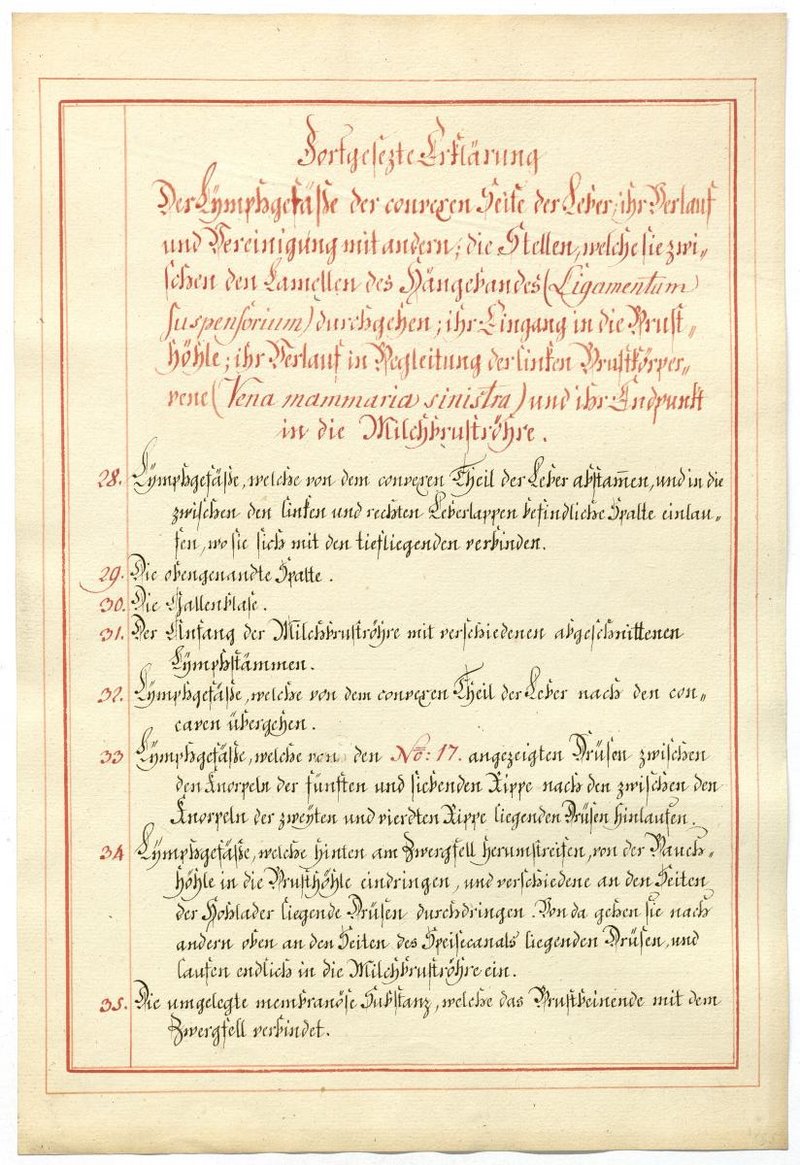 Fortgesezte Erklärung
Der Lymphgefäße der convexen Seite der Leber, ihr Verlauf
und Vereinigung mit andern; die Stellen, welche sie zwi„
schen den Lamellen des Hängebandes (Ligamentum
suspensorium) durchgehen; ihr Eingang in die Brust„
höhle; ihr Verlauf in Begleitung der linken Brustkörper„
vene (Vena mammaria sinistra) und ihr Endpunkt
in die Milchbruströhre.
28. Lymphgefäße, welche von dem convexen Theil der Leber abstam̄en, und in die
zwischen den linken und rechten Leberlappen befindliche Spalte einlau„
fen, wo sie sich mit den tiefliegenden verbinden.
29. Die obengenandte Spalte.
30. Die Gallenblase.
31. Der Anfang der Milchbruströhre mit verschiedenen abgeschnittenen
Lymphstämmen.
32. Lymphgefäße, welche von dem convexen Theil der Leber nach den con„
caven übergehen.
33 Lymphgefäße, welche von den No: 17. angezeigten Drüsen zwischen
den Knorpeln der fünften und siebenden Rippe nach den zwischen den
Knorpeln der zweyten und vierdten Rippe liegenden Drüsen hinlaufen.
34 Lymphgefäße, welche hinten am Zwergfell herumstreifen, von der Bauch„
höhle in die Brusthöhle eindringen, und verschiedene an den Seiten
der Hohlader liegende Drüsen durchdringen. Von da gehen sie nach
andern oben an den Seiten des Speisecanals liegenden Drüsen, und
laufen endlich in die Milchbruströhre ein.
35. Die umgelegte membranöse Substanz, welche das Brustbeinende mit dem
Zwergfell verbindet.